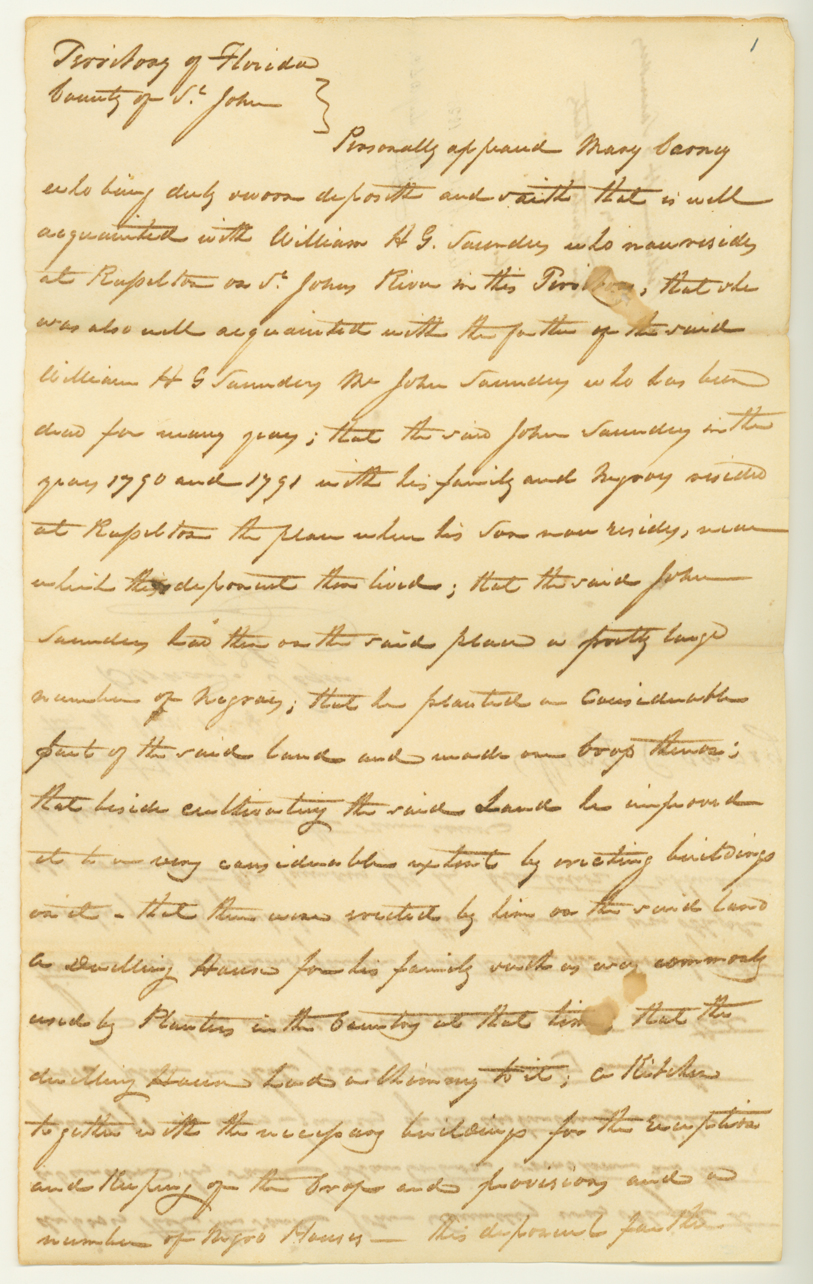 1
Territory of Florida
County of St. John }
Personally appeared Mary Carney
who being duly sworn deposeth and saith that is well
acquainted with William H G. Saunders who now resides
at Russelton on St. Johns River in this Territory; that she
was also well acquainted with the father of the said
William H G Saunders Mr John Saunders who has been
dead for many years; that the said John Saunders in the
years 1790 and 1791 with his family and Negroes resided
at Russelton the place where his Son now resides, near
which this deponent then lived; that the said John
Saunders had then on the said place a pretty large
number of Negroes; that he planted a Considerable
part of the said land and made a Crop thereon;
that beside cultivating the said Land he improved
it to a very considerable extent by erecting buildings
on it - that there were erected by him on the said land
a Dwelling House for his family such as was commonly
used by Planters in the Country at that time; that the
dwelling House had a Chimney to it; a Kitchen
together with the necessary buildings for the reception
and keeping of the Crops and provisions and a
number of Negro Houses — this deponent further